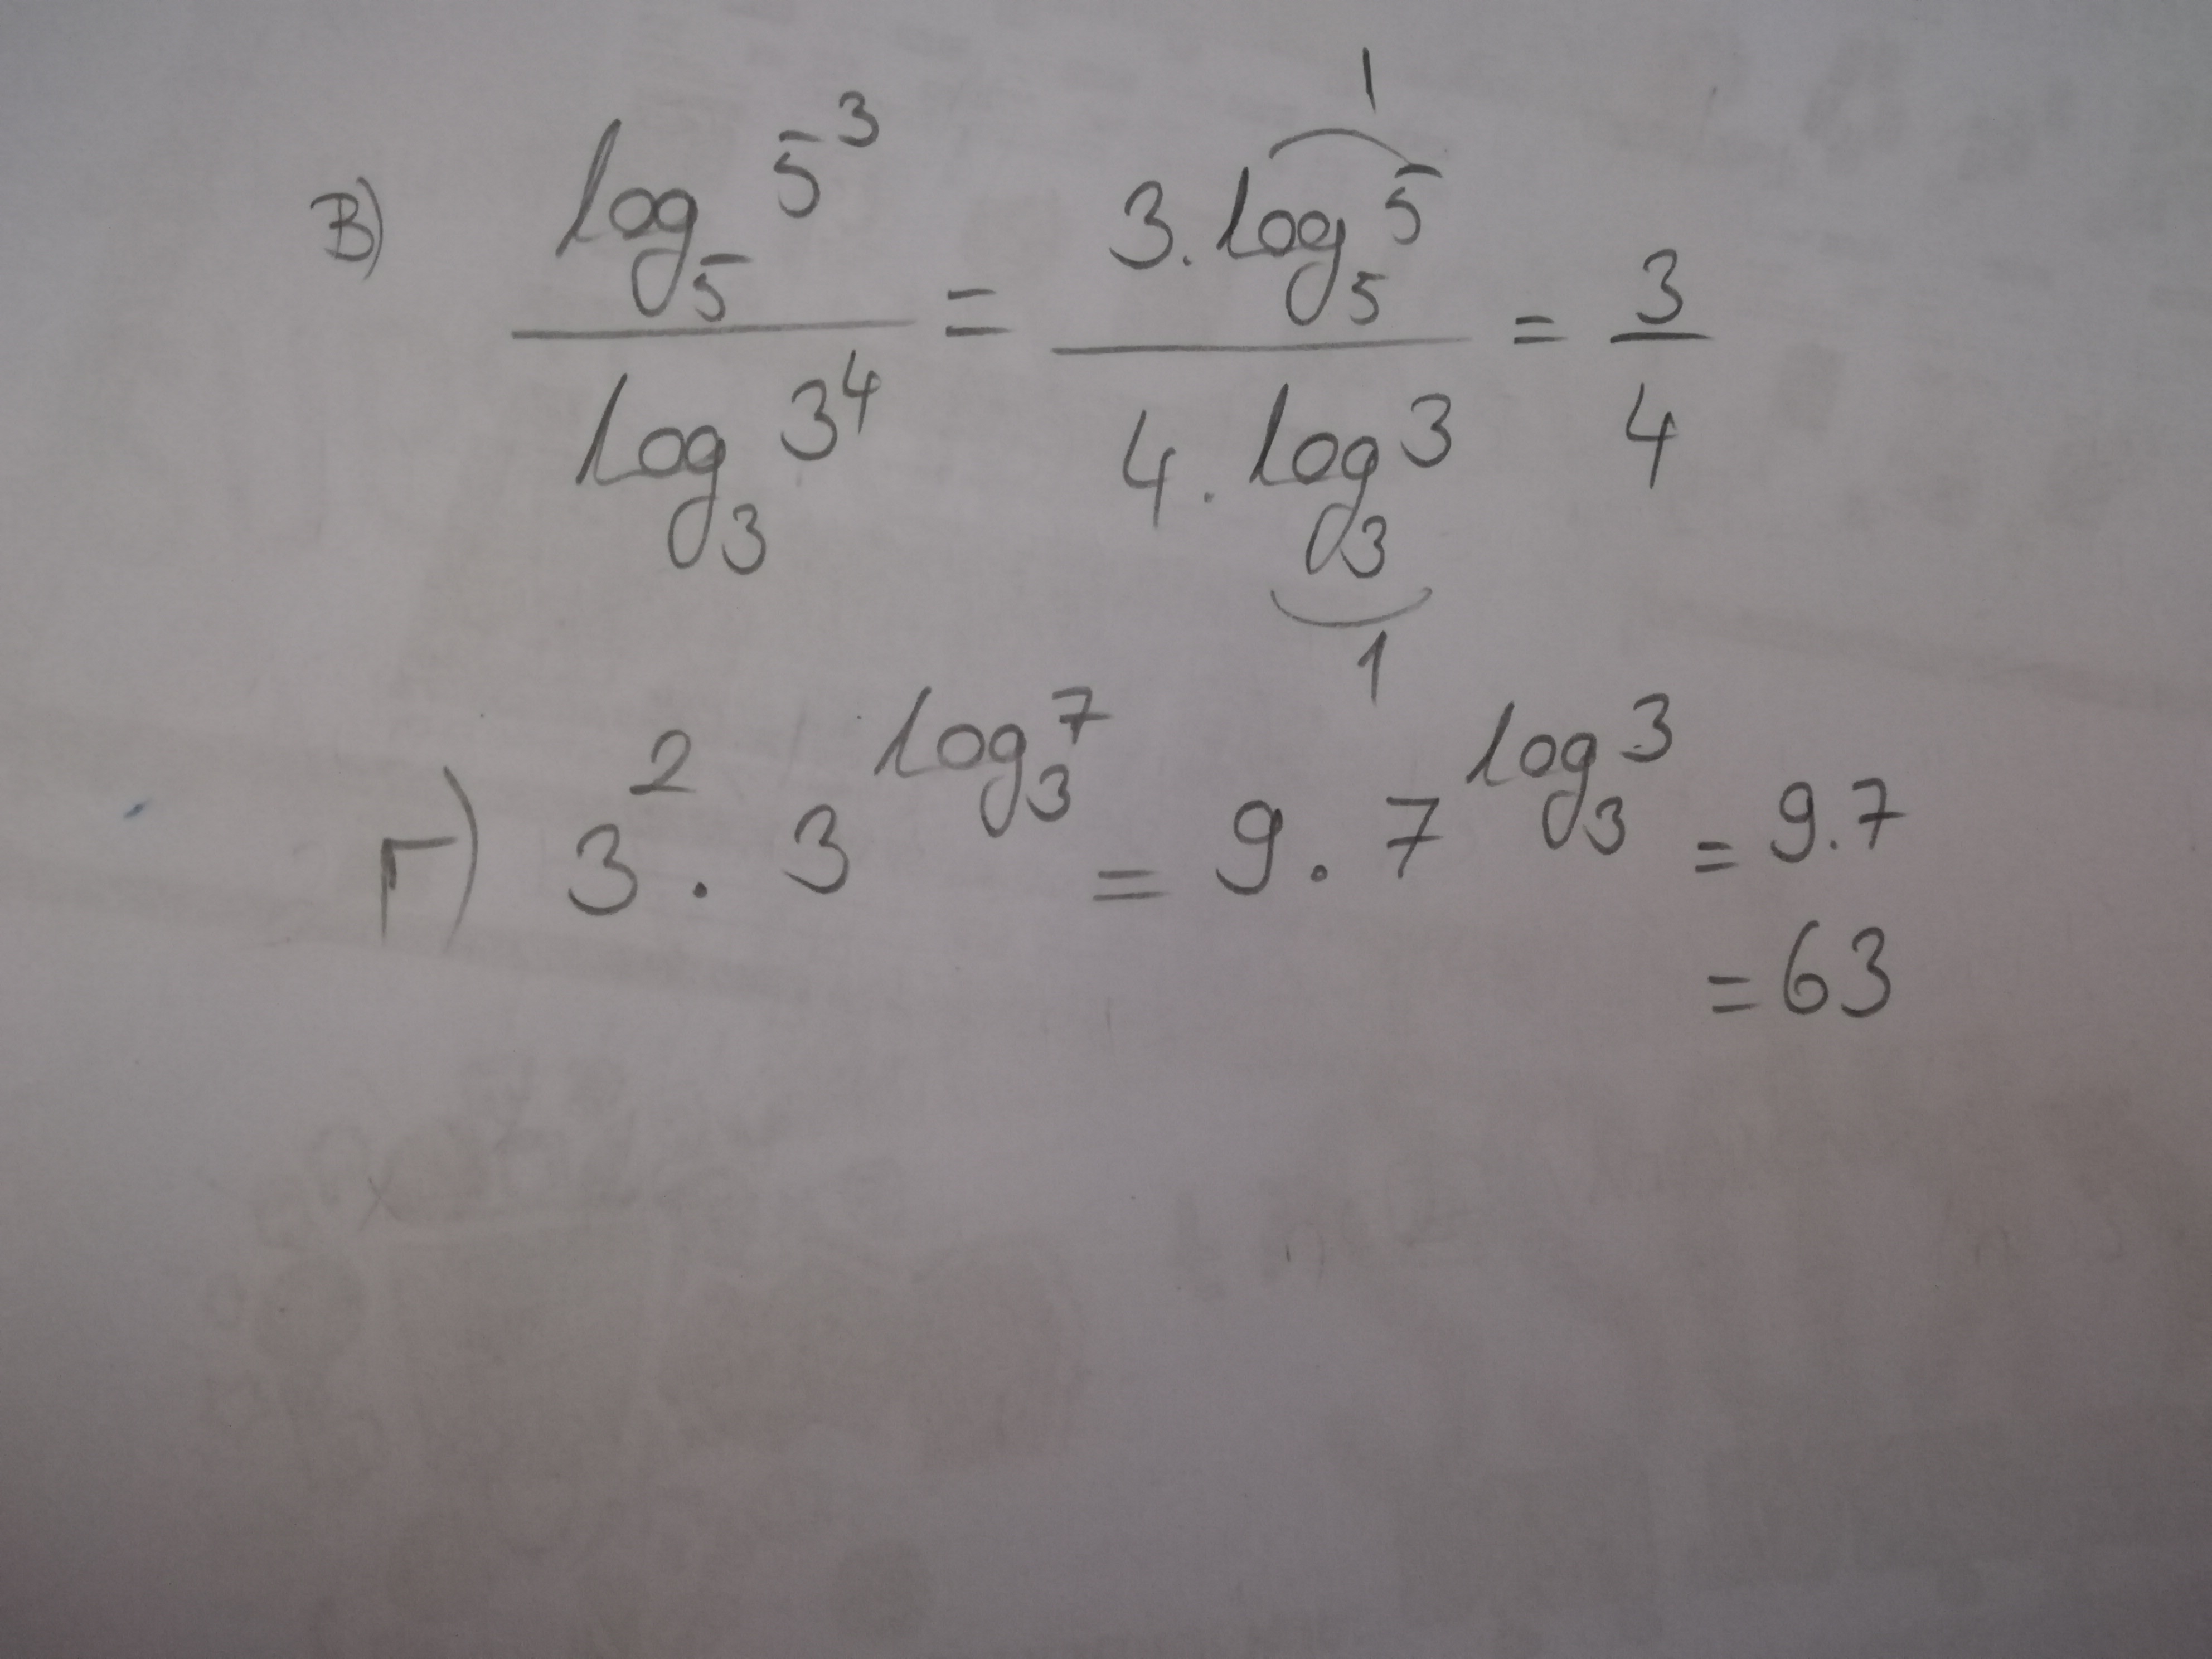 В) log₅ 5³ / log₃ 3⁴ = 3 . log₅ 5 / 4 . log₃ 3 = 3/4
1
1
Г) 3² . 3^(log₃ 7) = 9 . 7^(log₃ 3) = 9.7
= 63